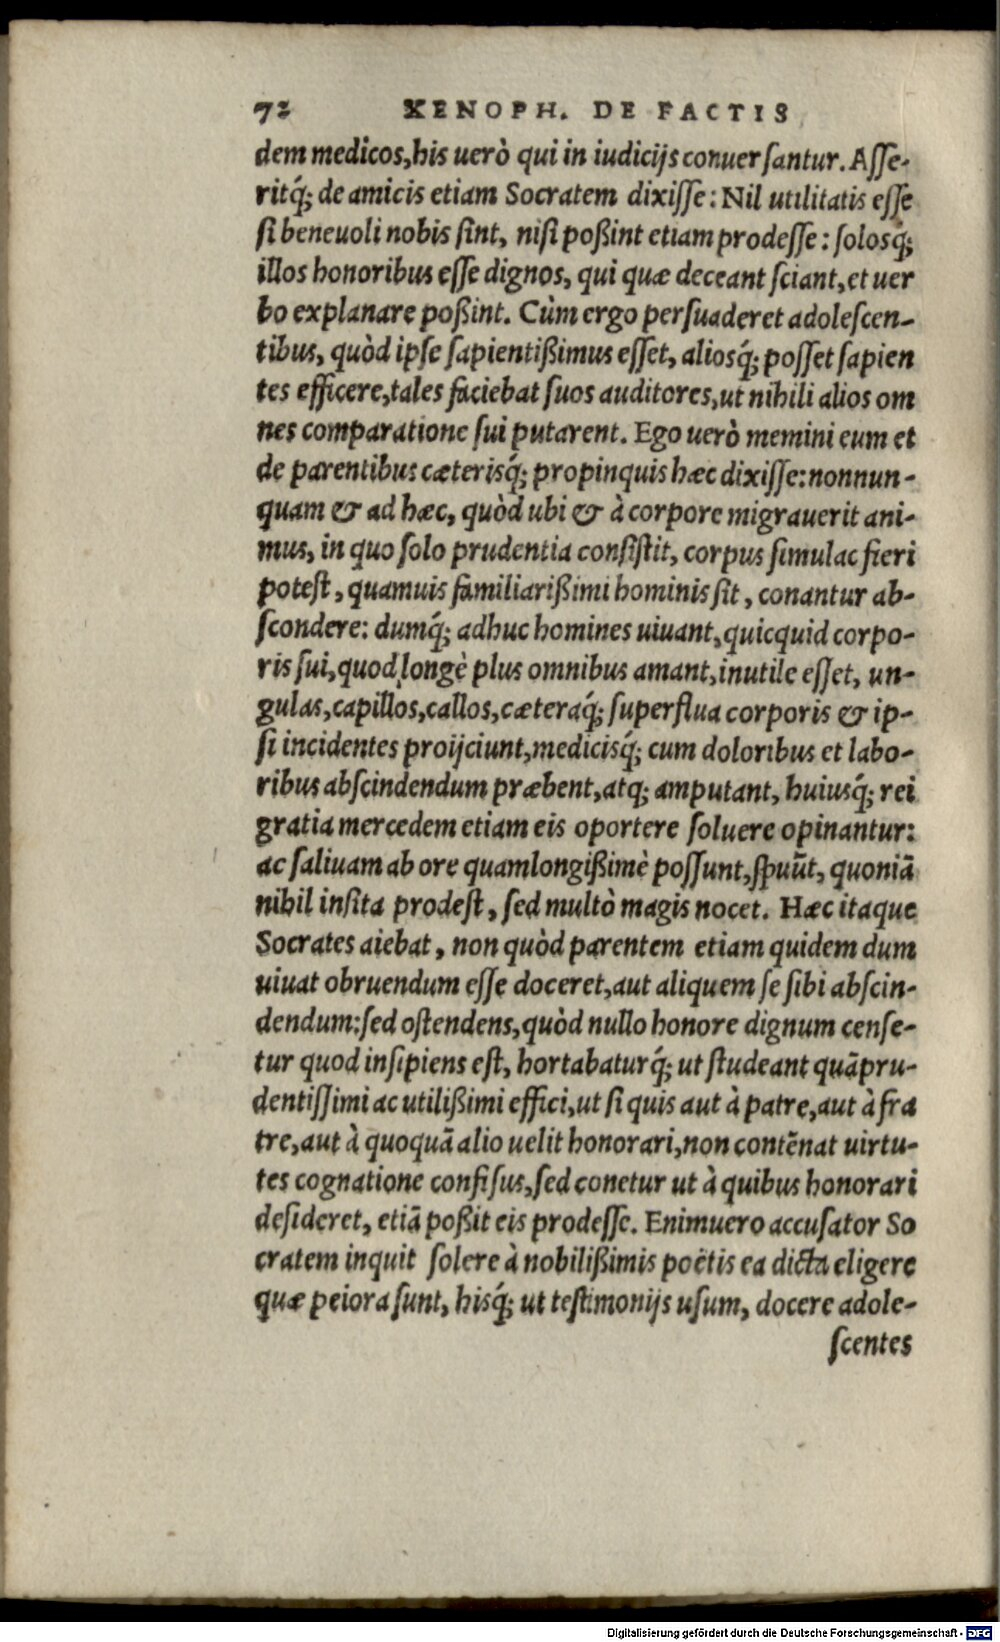 72 XENOPH. DE FACTIS
dem medicos, his uerò qui in iudicijs conuersantur. Asse-
ritq́; de amicis etiam Socratem dixisse: Nil utilitatis esse
si beneuoli nobis sint, nisi poßint etiam prodesse: solosq́;
illos honoribus esse dignos, qui quæ deceant sciant, et uer
bo explanare poßint. Cùm ergo persuaderet adolescen-
tibus, quòd ipse sapientißimus esset, aliosq́; posset sapien
tes efficere, tales faciebat suos auditores, ut nihili alios om
nes comparatione sui putarent. Ego uerò memini eum et
de parentibus cæterisq́; propinquis hæc dixisse: nonnun-
quam & ad hæc, quòd ubi & à corpore migrauerit ani-
mus, in quo solo prudentia consistit, corpus simulac fieri
potest, quamuis familiarißimi hominis sit, conantur ab-
scondere: dumq́; adhuc homines uiuant, quicquid corpo-
ris sui, quod longè plus omnibus amant, inutile esset, un-
gulas, capillos, callos, cæteraq́; superflua corporis & ip-
si incidentes proijciunt, medicisq́; cum doloribus et labo-
ribus abscindendum præbent, atq; amputant, huiusq́; rei
gratia mercedem etiam eis oportere soluere opinantur:
ac saliuam ab ore quamlongißimè possunt, spuūt, quoniã
nihil insita prodest, sed multò magis nocet. Hæc itaque
Socrates aiebat, non quòd parentem etiam quidem dum
uiuat obruendum esse doceret, aut aliquem se sibi abscin-
dendum: sed ostendens, quòd nullo honore dignum cense-
tur quod insipiens est, hortabaturq́; ut studeant quãpru-
dentissimi ac utilißimi effici, ut si quis aut à patre, aut à fra
tre, aut à quoquã alio uelit honorari, non contēnat uirtu-
tes cognatione confisus, sed conetur ut à quibus honorari
desideret, etiã poßit eis prodesse. Enimuero accusator So
cratem inquit solere à nobilißimis poëtis ea dicta eligere
quæ peiora sunt, hisq́; ut testimonijs usum, docere adole-
scentes
Digitalisierung gefördert durch die Deutsche Forschungsgemeinschaft - DFG